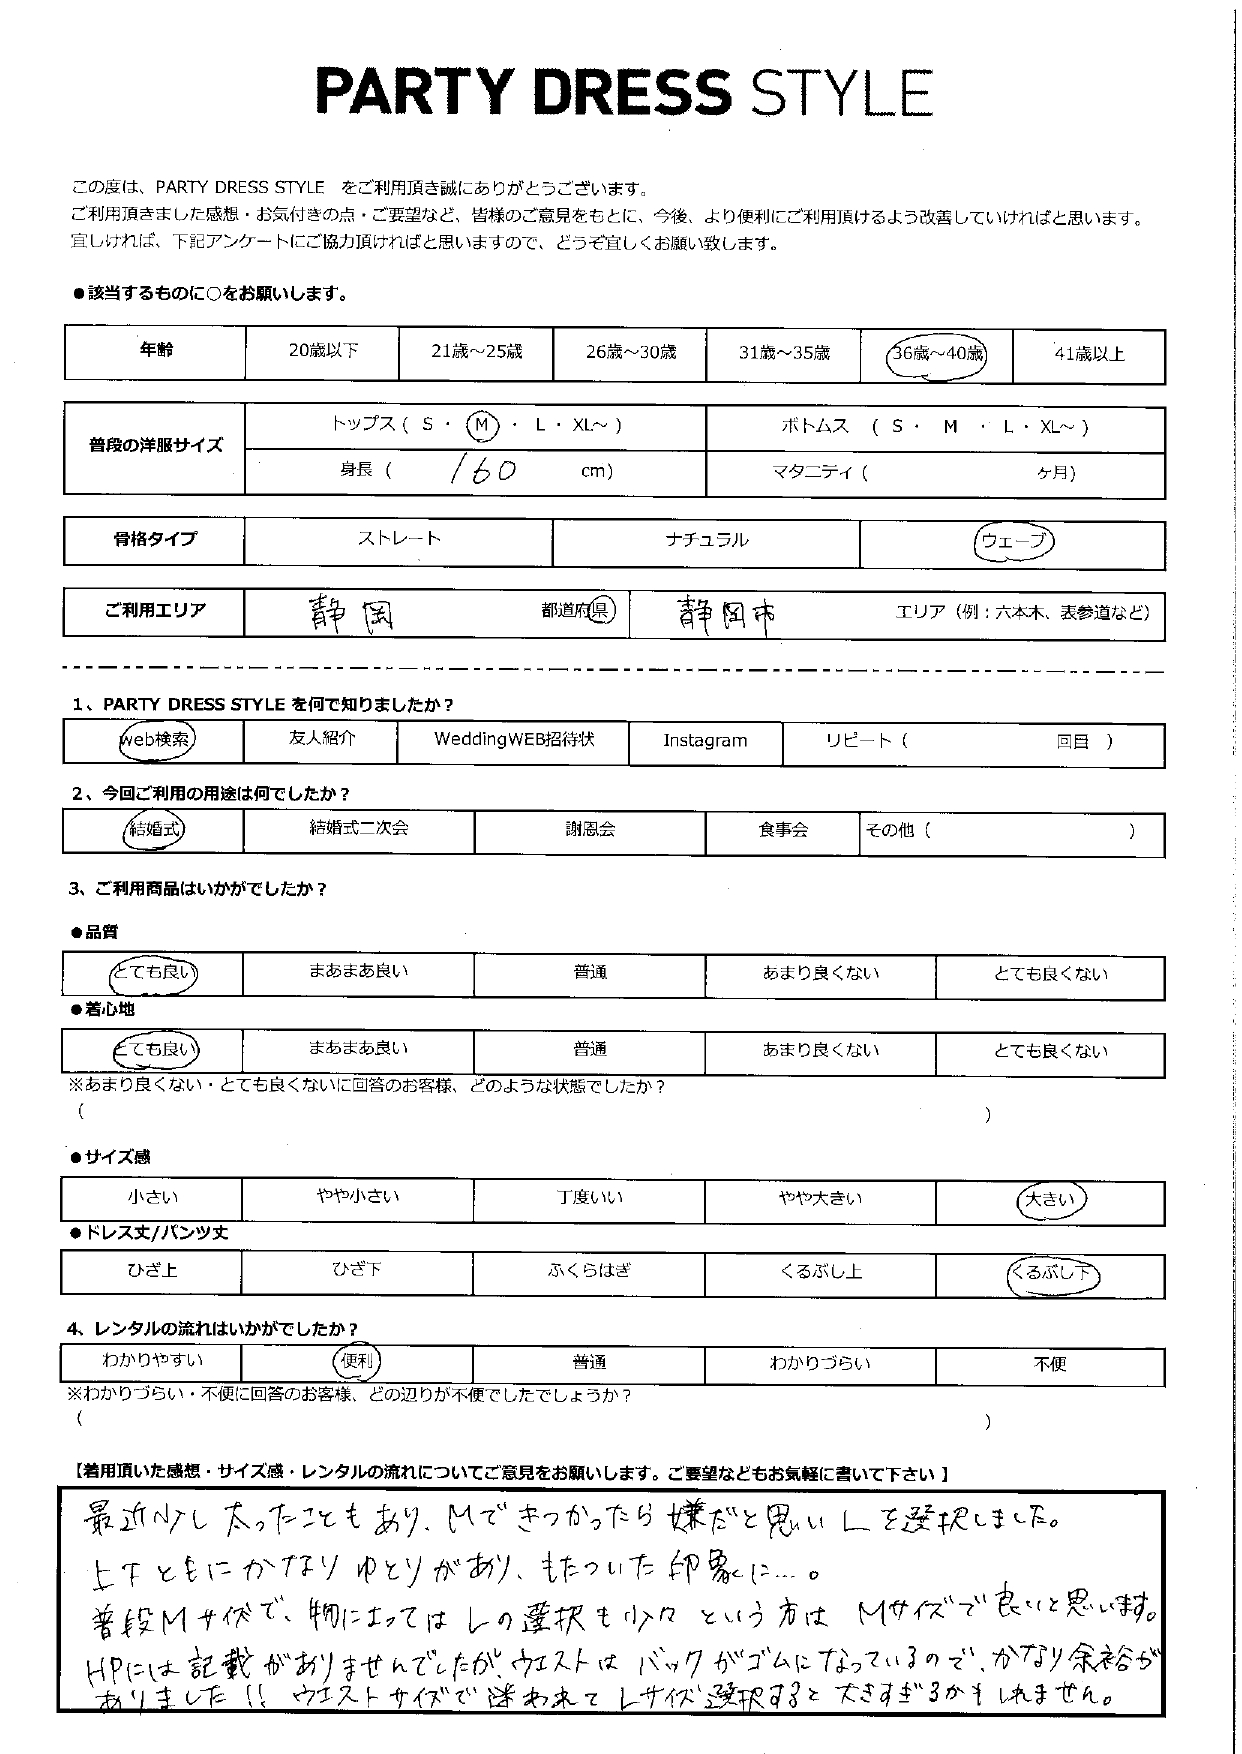 PARTY DRESS STYLE
この度は、PARTY DRESS STYLE をご利用頂き誠にありがとうございます。
ご利用頂きました感想・お気付きの点・ご要望など、皆様のご意見をもとに、今後、より便利にご利用頂けるよう改善していければと思います。
宜しければ、下記アンケートにご協力頂ければと思いますので、どうぞ宜しくお願い致します。
●該当するものに○をお願いします。
年齢 20歳以下 21歳～25歳 26歳～30歳 31歳～35歳 36歳～40歳 41歳以上
普段の洋服サイズ
トップス ( S ・ M ・ L ・ XL～ ) ボトムス ( S ・ M ・ L ・ XL～ )
身長 ( 160 cm) マタニティ ( ヶ月)
骨格タイプ ストレート ナチュラル ウェーブ
ご利用エリア 静岡 都道府県 静岡市 エリア（例：六本木、表参道など）
1、PARTY DRESS STYLE を何で知りましたか？
web検索 友人紹介 WeddingWEB招待状 Instagram リピート ( 回目 )
2、今回ご利用の用途は何でしたか？
結婚式 結婚式二次会 謝恩会 食事会 その他 ( )
3、ご利用商品はいかがでしたか？
●品質
とても良い まあまあ良い 普通 あまり良くない とても良くない
●着心地
とても良い まあまあ良い 普通 あまり良くない とても良くない
※あまり良くない・とても良くないに回答のお客様、どのような状態でしたか？
( )
●サイズ感
小さい やや小さい 丁度いい やや大きい 大きい
●ドレス丈/パンツ丈
ひざ上 ひざ下 ふくらはぎ くるぶし上 くるぶし下
4、レンタルの流れはいかがでしたか？
わかりやすい 便利 普通 わかりづらい 不便
※わかりづらい・不便に回答のお客様、どの辺りが不便でしたでしょうか？
( )
【着用頂いた感想・サイズ感・レンタルの流れについてご意見をお願いします。ご要望などもお気軽に書いて下さい 】
最近少し太ったこともあり、Mできつかったら嫌だと思い Lを選択しました。
上下ともにかなりゆとりがあり、もたついた印象に…。
普段Mサイズで、物によってはLの選択も少々という方は Mサイズで良いと思います。
HPには記載がありませんでしたが、ウエストは バックがゴムになっているので、かなり余裕が
ありました!! ウエストサイズで迷われて Lサイズ選択すると大きすぎるかもしれません。